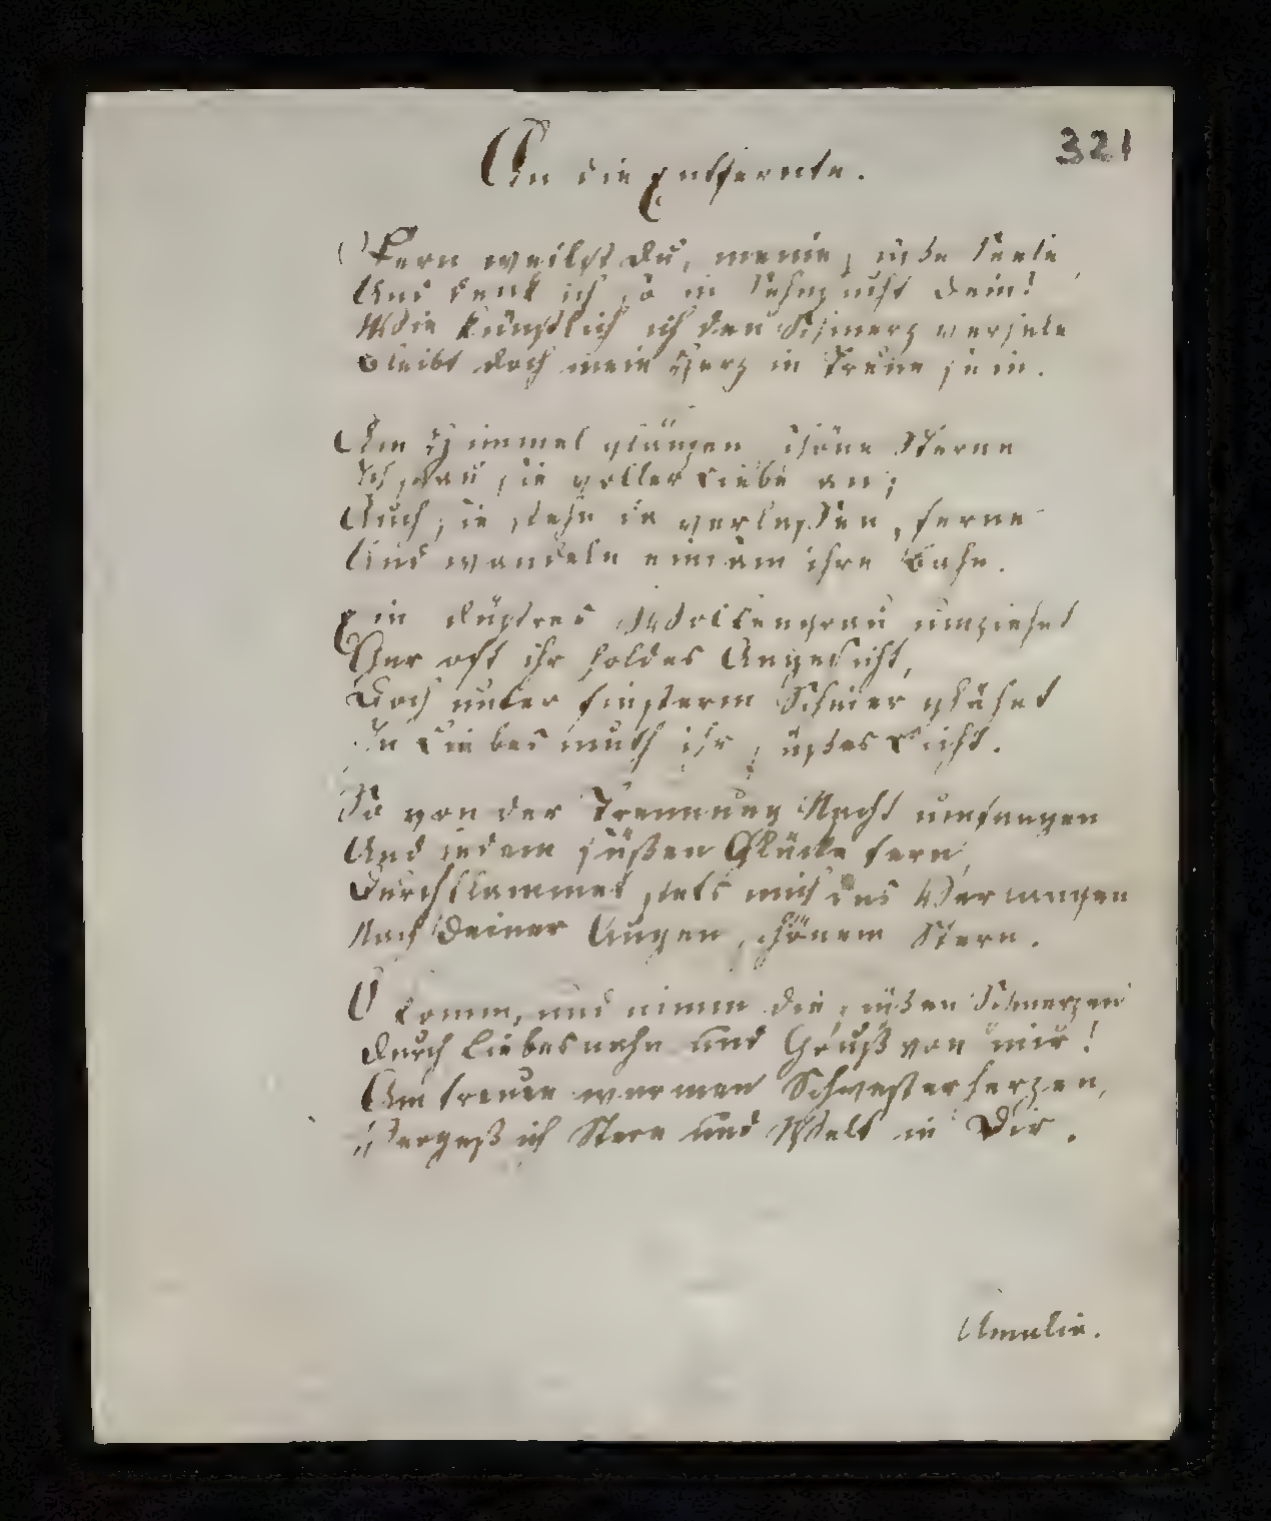 321
An die Entfernte.
Fern weilst du, meine süße Seele,
Und denk ich so in Sehnsucht dein!
Wie künstlich ich den Schmerz verhele
Bleibt doch mein Herz in Treue sein.
Am Himmel glänzen schöne Sterne
Ich schau sie voller Liebe an;
Auch sie stehn da verlassen, ferne
Und wandeln einsam ihre Bahn.
Ein düstres Wolkengrau umziehet
Gar oft ihr holdes Angesicht,
Doch unter finsterm Schleier glühet
In Liebesmuth ihr süßes Licht.
So von der Trennung Nacht umfangen
Und jedem süßen Glücke fern,
Durchflammet stets mich das Verlangen
Nach deiner Augen schönem Stern.
O komm, und nimm die süßen Schmerzen
Durch Liebesnähe und Gruß von mir!
Am treuen warmen Schwesterherzen,
Vergeß ich Stern und Welt in Dir.
Amalie.